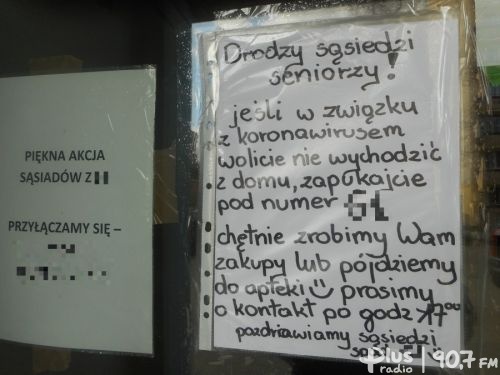 PIĘKNA AKCJA
SĄSIADÓW Z
PRZYŁĄCZAMY SIĘ –
Drodzy sąsiedzi
seniorzy!
jeśli w związku
z koronawirusem
wolicie nie wychodzić
z domu, zapukajcie
pod numer
chętnie zrobimy Wam
zakupy lub pójdziemy
do apteki prosimy
o kontakt po godz 17⁰⁰
pozdrawiamy sąsiedzi
plus radio 90,7 FM